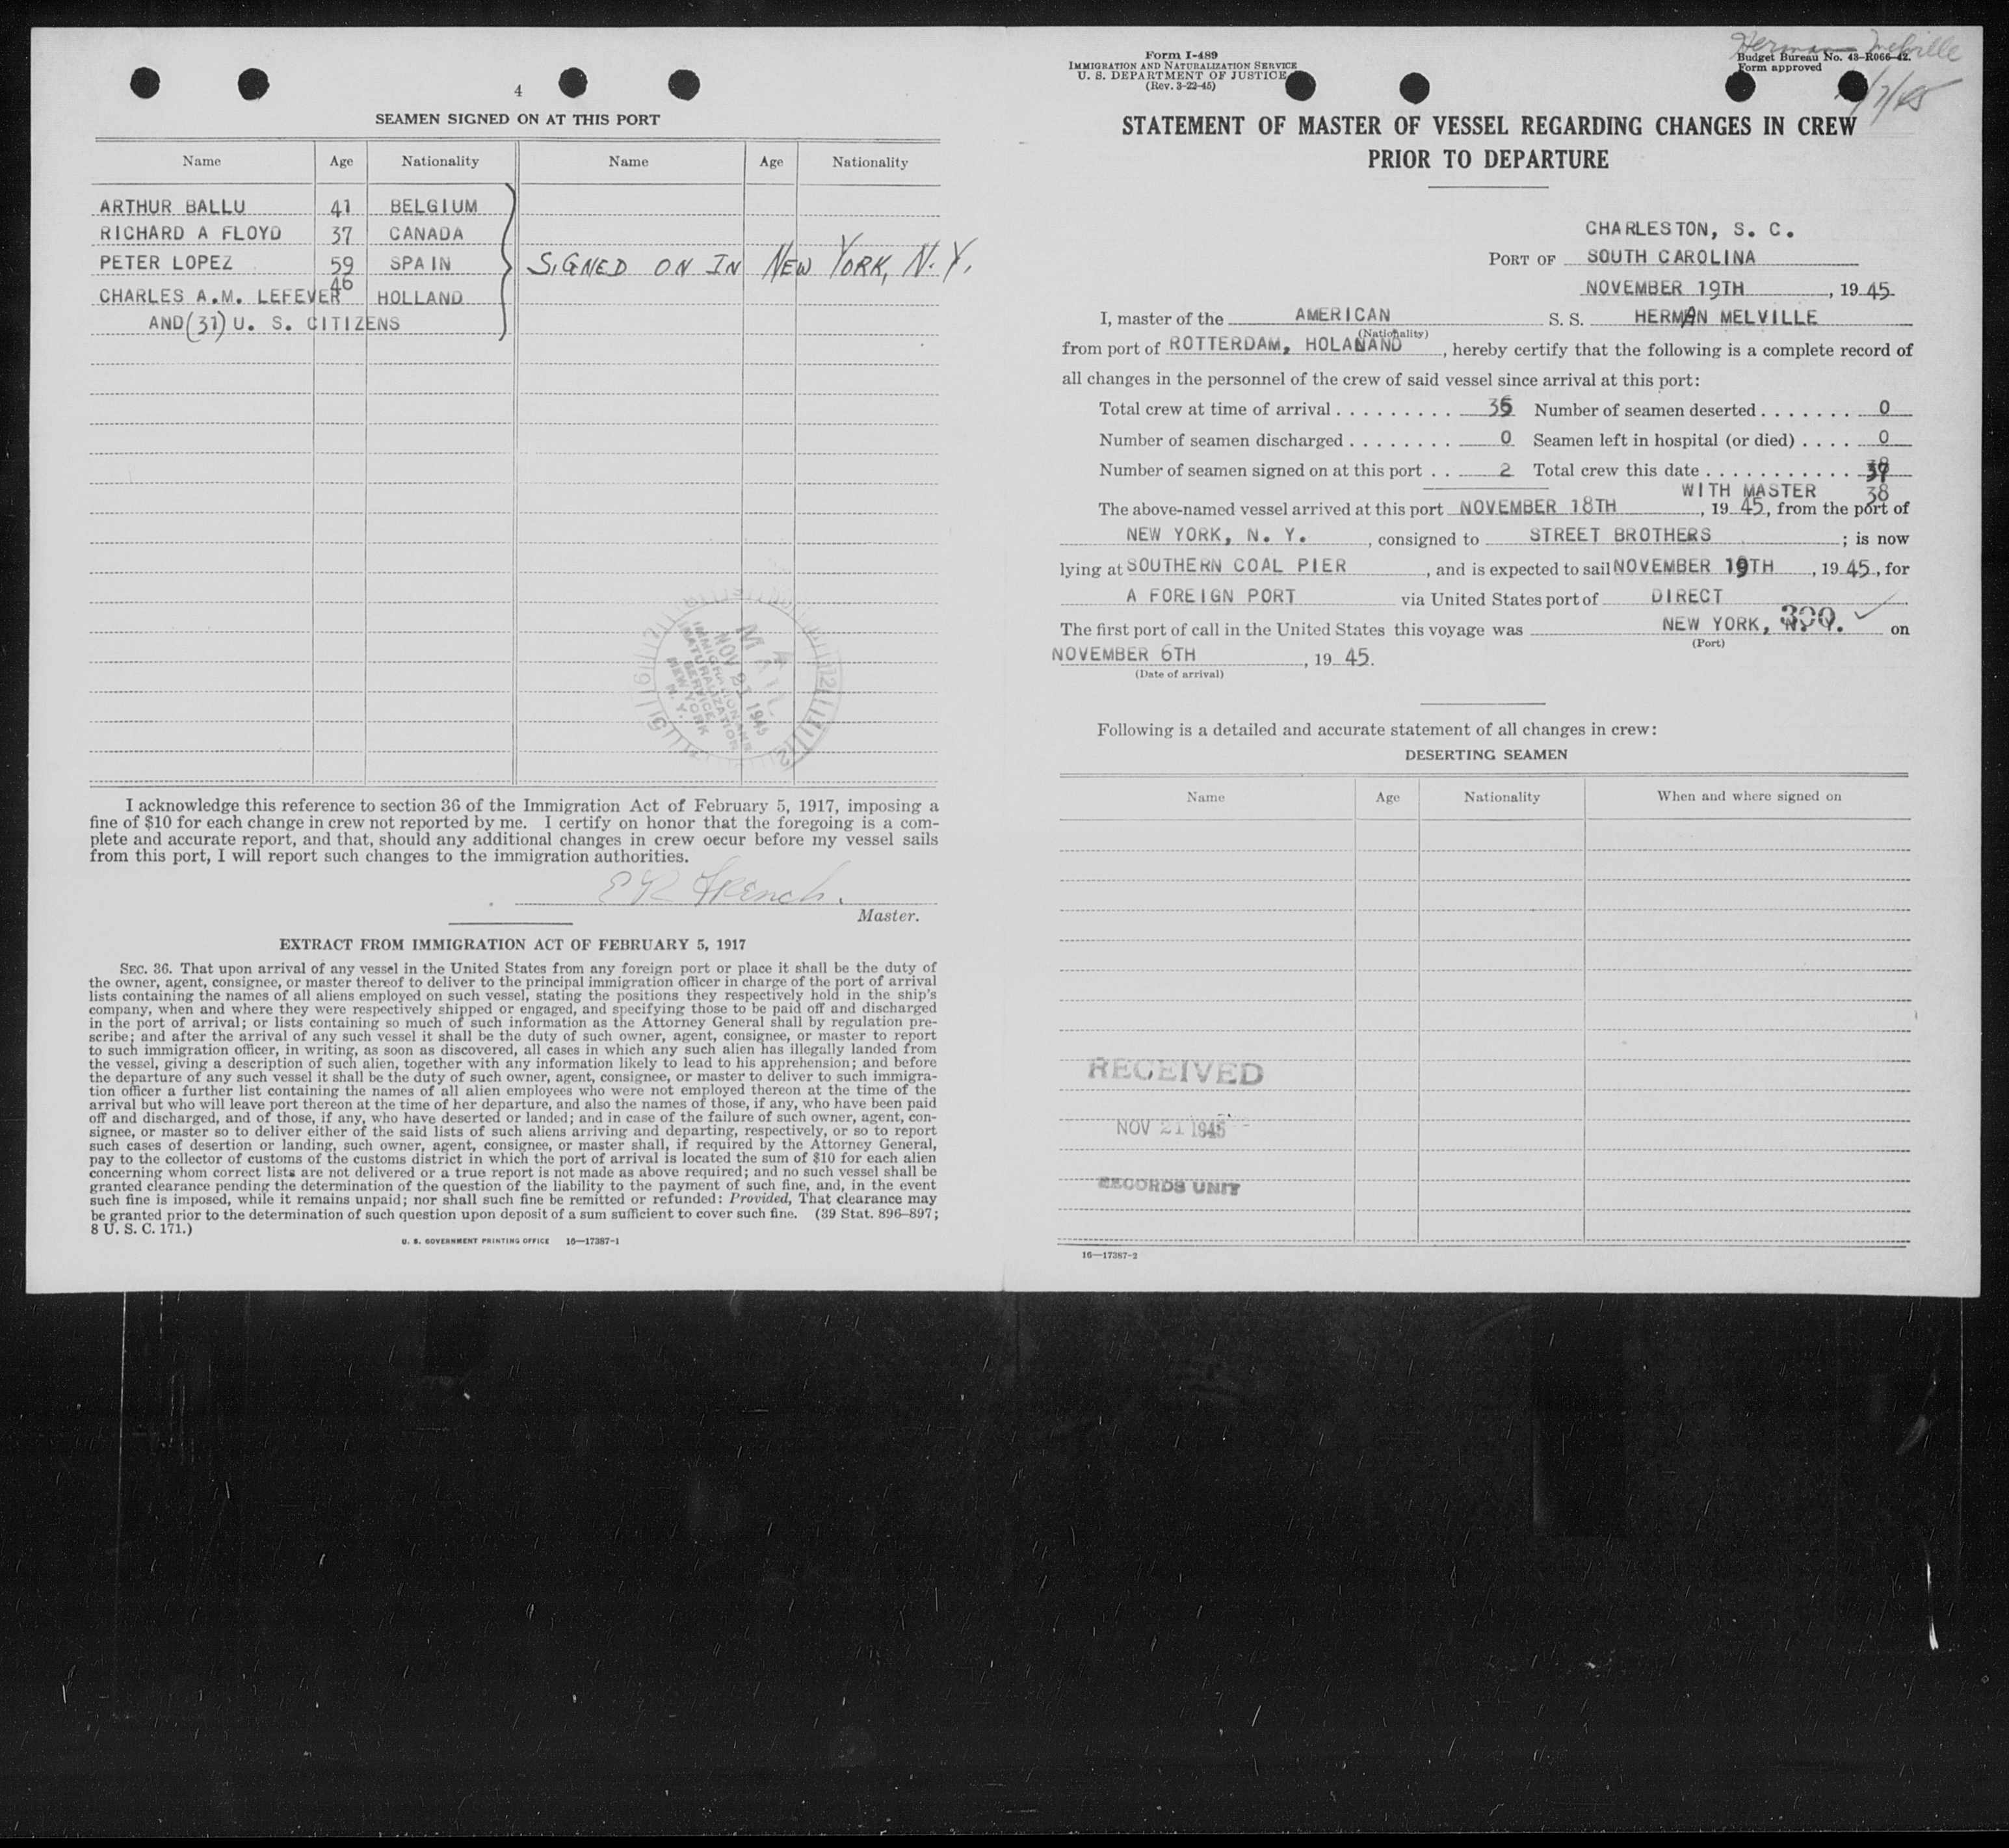 4
SEAMEN SIGNED ON AT THIS PORT
Name Age Nationality Name Age Nationality
ARTHUR BALLU 41 BELGIUM
RICHARD A FLOYD 37 CANADA
PETER LOPEZ 59 SPAIN SIGNED ON IN NEW YORK, N. Y.
CHARLES A.M. LEFEVER 46 HOLLAND
AND (31) U. S. CITIZENS
MAIL
NOV 21 1945
IMMIGRATION AND
NATURALIZATION
SERVICE
NEW YORK
N. Y.
I acknowledge this reference to section 36 of the Immigration Act of February 5, 1917, imposing a
fine of $10 for each change in crew not reported by me. I certify on honor that the foregoing is a com-
plete and accurate report, and that, should any additional changes in crew occur before my vessel sails
from this port, I will report such changes to the immigration authorities.
E R French.
Master.
EXTRACT FROM IMMIGRATION ACT OF FEBRUARY 5, 1917
SEC. 36. That upon arrival of any vessel in the United States from any foreign port or place it shall be the duty of
the owner, agent, consignee, or master thereof to deliver to the principal immigration officer in charge of the port of arrival
lists containing the names of all aliens employed on such vessel, stating the positions they respectively hold in the ship's
company, when and where they were respectively shipped or engaged, and specifying those to be paid off and discharged
in the port of arrival; or lists containing so much of such information as the Attorney General shall by regulation pre-
scribe; and after the arrival of any such vessel it shall be the duty of such owner, agent, consignee, or master to report
to such immigration officer, in writing, as soon as discovered, all cases in which any such alien has illegally landed from
the vessel, giving a description of such alien, together with any information likely to lead to his apprehension; and before
the departure of any such vessel it shall be the duty of such owner, agent, consignee, or master to deliver to such immigra-
tion officer a further list containing the names of all alien employees who were not employed thereon at the time of the
arrival but who will leave port thereon at the time of her departure, and also the names of those, if any, who have been paid
off and discharged, and of those, if any, who have deserted or landed; and in case of the failure of such owner, agent, con-
signee, or master so to deliver either of the said lists of such aliens arriving and departing, respectively, or so to report
such cases of desertion or landing, such owner, agent, consignee, or master shall, if required by the Attorney General,
pay to the collector of customs of the customs district in which the port of arrival is located the sum of $10 for each alien
concerning whom correct lists are not delivered or a true report is not made as above required; and no such vessel shall be
granted clearance pending the determination of the question of the liability to the payment of such fine, and, in the event
such fine is imposed, while it remains unpaid; nor shall such fine be remitted or refunded: Provided, That clearance may
be granted prior to the determination of such question upon deposit of a sum sufficient to cover such fine. (39 Stat. 896–897;
8 U. S. C. 171.)
U. S. GOVERNMENT PRINTING OFFICE 16—17387-1
Form I-489
IMMIGRATION AND NATURALIZATION SERVICE
U. S. DEPARTMENT OF JUSTICE
(Rev. 3-22-45)
Herman Melville
Budget Bureau No. 43-R066-42.
Form approved
STATEMENT OF MASTER OF VESSEL REGARDING CHANGES IN CREW
PRIOR TO DEPARTURE
CHARLESTON, S. C.
PORT OF SOUTH CAROLINA
NOVEMBER 19TH, 19 45.
I, master of the AMERICAN S. S. HERMAN MELVILLE
(Nationality)
from port of ROTTERDAM, HOLANAND, hereby certify that the following is a complete record of
all changes in the personnel of the crew of said vessel since arrival at this port:
Total crew at time of arrival . . . . . . . . . 36 Number of seamen deserted . . . . . . . 0
Number of seamen discharged . . . . . . . . 0 Seamen left in hospital (or died) . . . . 0
Number of seamen signed on at this port . . 2 Total crew this date . . . . . . . . . . .
WITH MASTER 38
The above-named vessel arrived at this port NOVEMBER 18TH, 19 45, from the port of
NEW YORK, N. Y., consigned to STREET BROTHERS; is now
lying at SOUTHERN COAL PIER, and is expected to sail NOVEMBER 19TH, 19 45, for
A FOREIGN PORT via United States port of DIRECT
The first port of call in the United States this voyage was NEW YORK, N. Y. 300 ✓ on
(Port)
NOVEMBER 6TH, 19 45.
(Date of arrival)
Following is a detailed and accurate statement of all changes in crew:
DESERTING SEAMEN
Name Age Nationality When and where signed on
RECEIVED
NOV 21 1945
RECORDS UNIT
16—17387-2